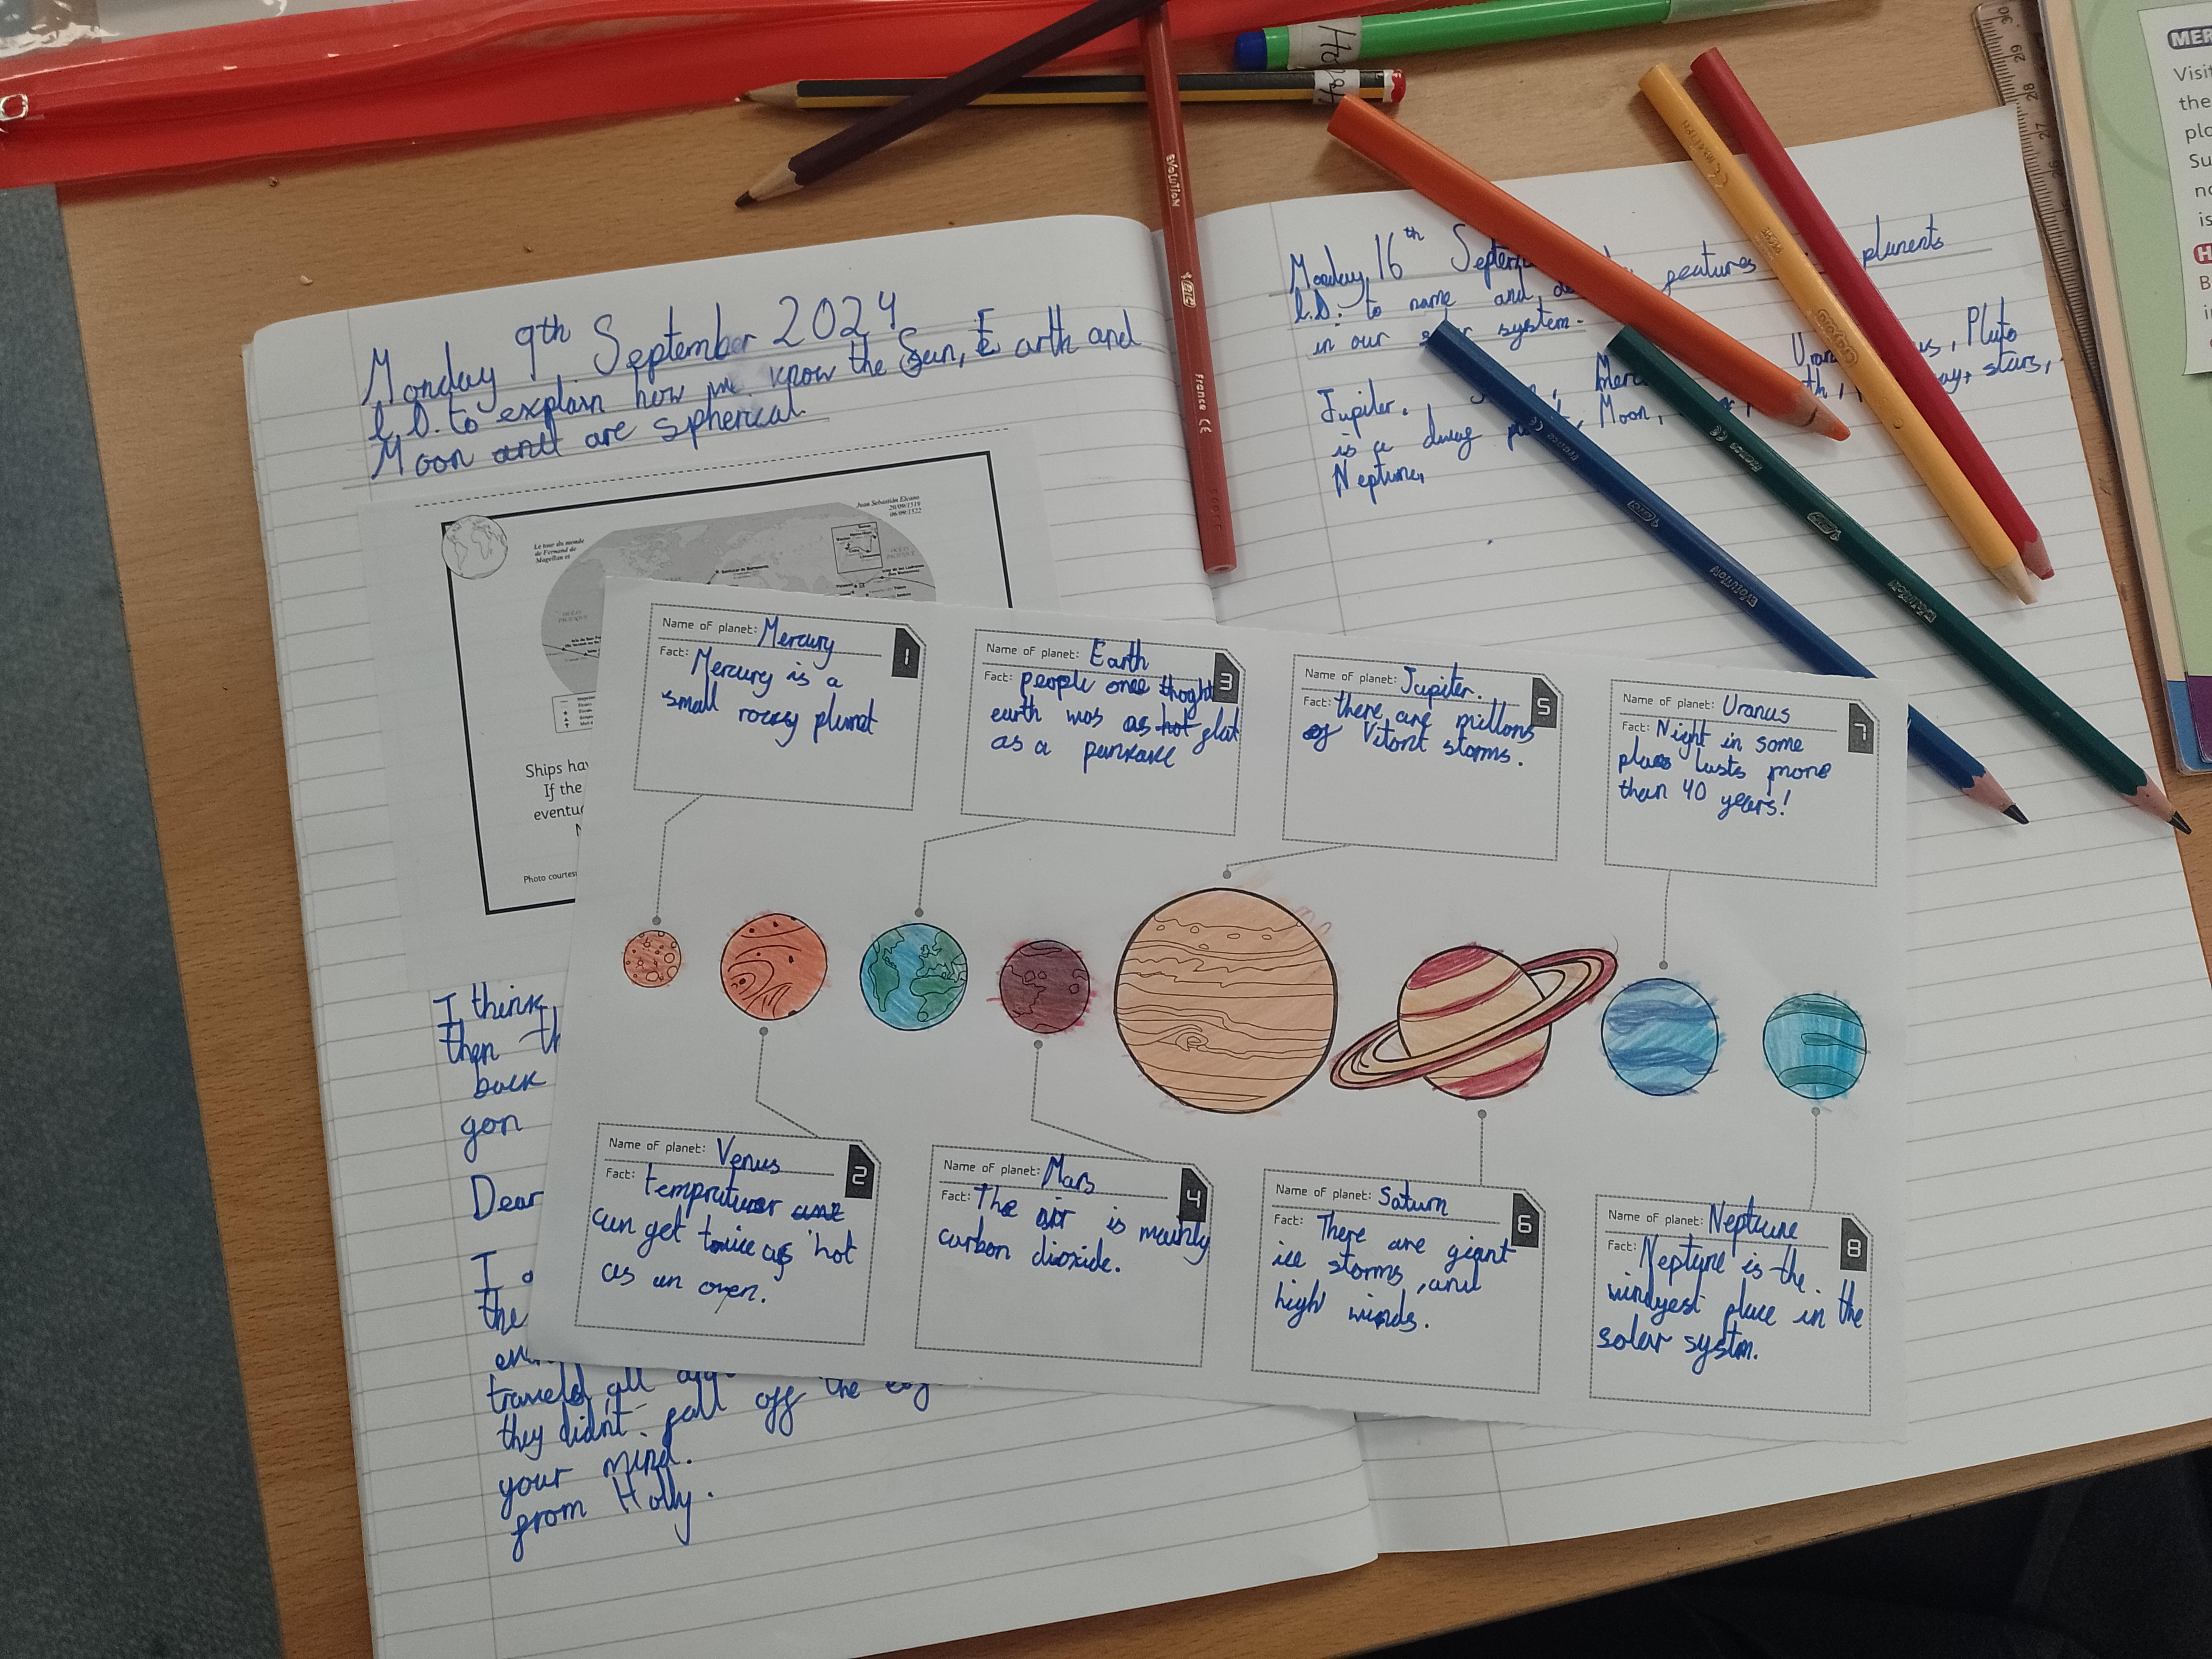 Monday 9th September 2024
L.O. to explain how we know the Sun, Earth and
Moon and are spherical.
Juan Sebastián Elcano
20/09/1519
08/09/1522
Le tour du monde
de Fernand de
Magellan et
Ships hav
If the
eventu
N
Photo courtes
I think
then th
back
gon
Dear
I
the
travels all
they didnt fall off the
your mind.
from Holly.
Monday 16th Septem
L.O. to name and features plunents
in our system.
Jupiter, Pluto
is a stars,
Moon,
Neptune,
Name of planet: Mercury
1
Fact: Mercury is a
small rocky plunet
Name of planet: Earth
3
Fact: people once thoght
earth was as hot flat
as a pancake
Name of planet: Jupiter.
5
Fact: there are millons
of Vitont storms.
Name of planet: Uranus
7
Fact: Night in some
places lasts more
than 40 years!
Name of planet: Venus
2
Fact: tempratuer
can get twice as hot
as an oven.
Name of planet: Mars
4
Fact: The air is mainly
carbon dioxide.
Name of planet: Saturn
6
Fact: There are giant
ice storms, and
high winds.
Name of planet: Neptune
8
Fact: Neptune is the
windyest place in the
solar system.
Holly
EVOLUTION
BIC
France CE
EVOLUTION
BIC
EVOLUTION
BIC
France CE
Crayola
30 29 28 27
MER
Visit
the
pla
Su
no
is
H
B
i